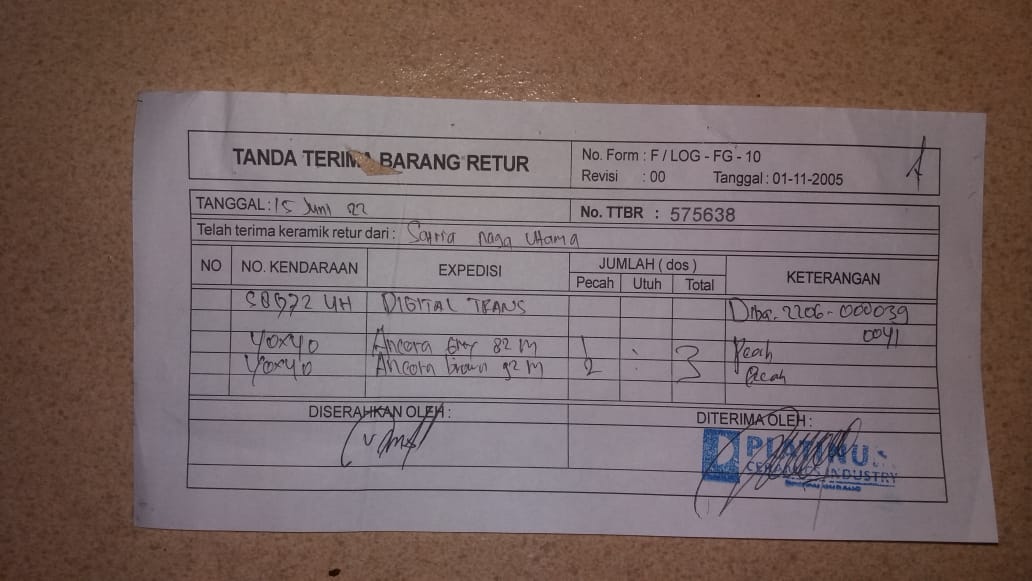 TANDA TERIMA BARANG RETUR
No. Form : F / LOG - FG - 10
Revisi : 00 Tanggal : 01-11-2005
TANGGAL : 15 Juni 22
No. TTBR : 575638
Telah terima keramik retur dari : Satria naga Utama
NO NO. KENDARAAN EXPEDISI JUMLAH ( dos ) KETERANGAN
Pecah Utuh Total
DIGITAL TRANS 2206 - 000039
0041
40x40 Ancora Grey 82 M 1 Pecah
40x40 Ancora brown 92 M 2 3 Pecah
DISERAHKAN OLEH : DITERIMA OLEH :
PLATINUM
CERAMICS INDUSTRY